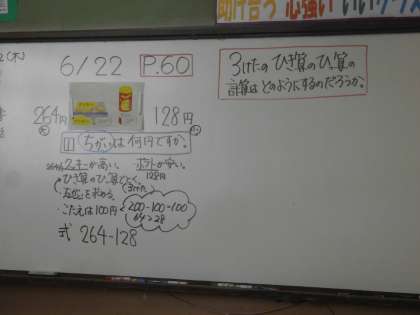 助け合う 心強い いいクラス
(木)
6/22 P.60
264円 128円
1 ちがいは何円ですか。
クッキーが高い。 ポテトが安い。
264円 128円
ひき算のひっ算でとく。
(3けた)
・ちがいを求める。
・こたえは100円
200-100=100
64>28
式 264-128
3けたのひき算のひっ算の
計算はどのようにするのだろうか。